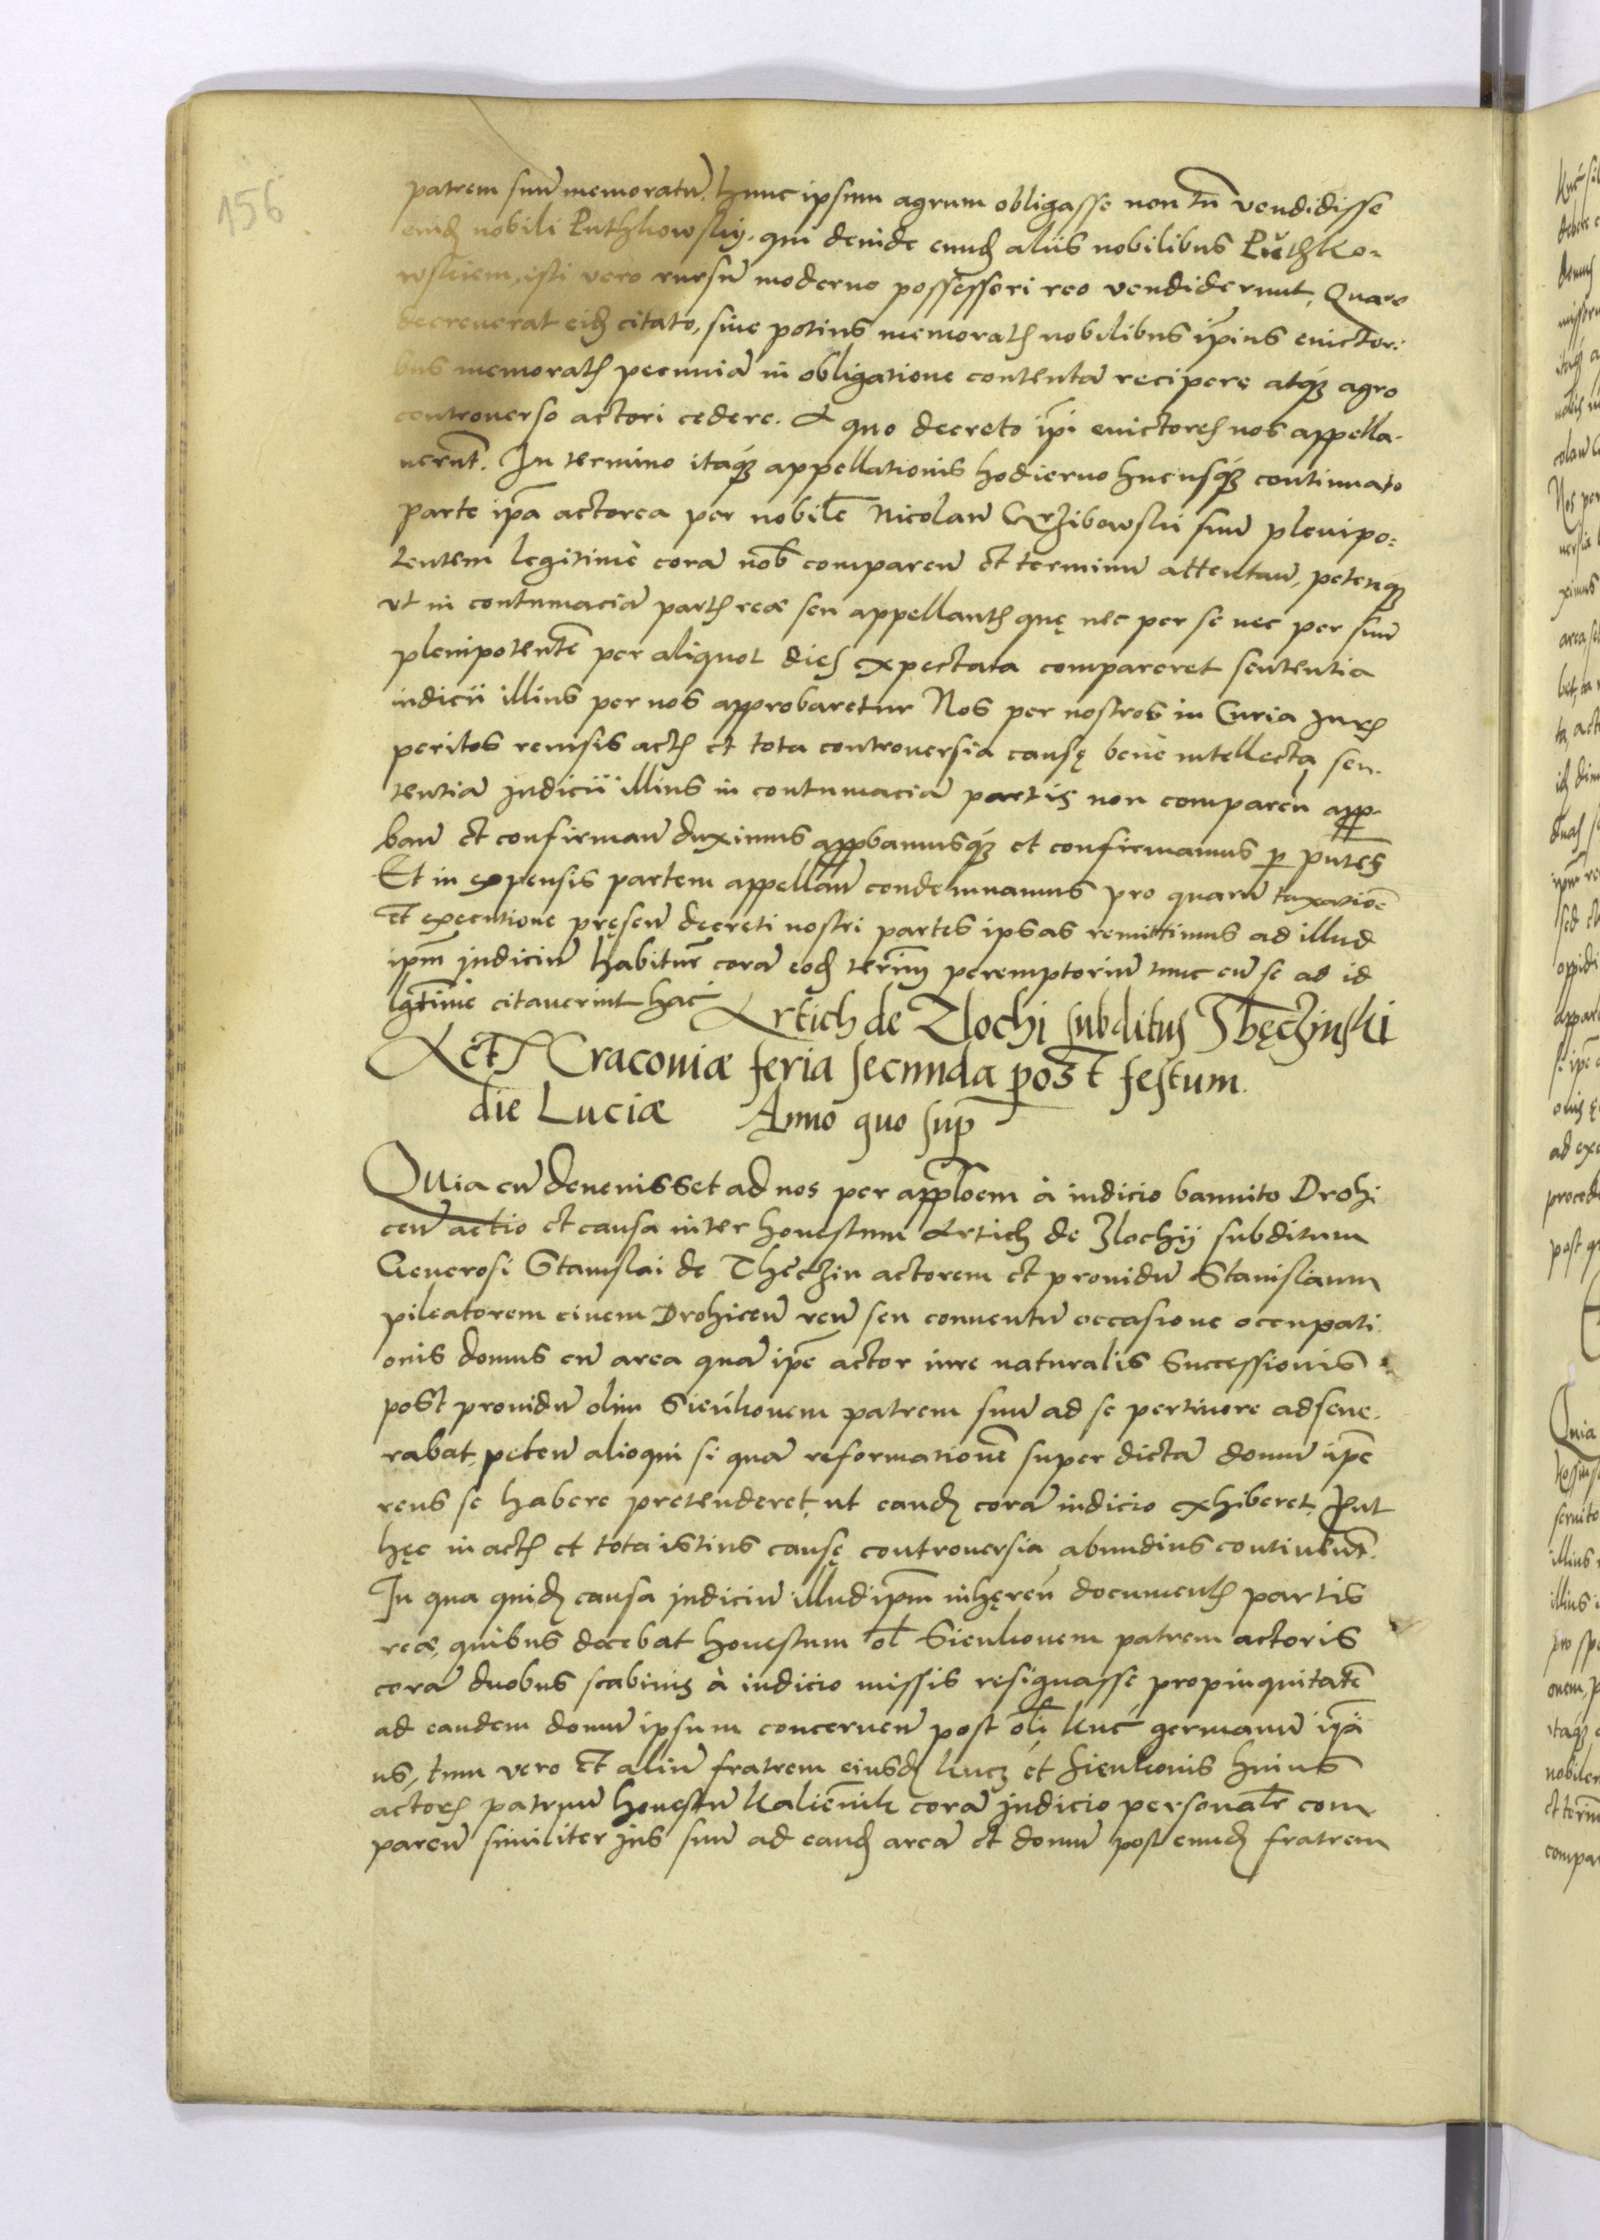 156
patrem suū memoratū, hunc ipsum agrum obligasse non tn̄ vendidisse
eid[em] nobili Puthkowskij. qui deinde eund[em] aliis nobilibus Pŭthko-
wskiem, isti vero rursū moderno possessori reo vendiderunt, Quare
decreuerat eid[em] citato, siue potius memorat[is] nobilibus ip̄ius euictori:
bus memorat[is] pecuniā in obligatione contentā recipere atq[ue] agro
controuerso actori cedere. A quo decreto ip̄i euictores nos appella-
uerūt. In termino itaq[ue] appellationis hodierno hucusq[ue] continuato
parte ip̄a actorea per nobilē Nicolaū Grzibowski suū plenipo=
tentem legitime corā nob̄ comparen̄ et terminū attentan̄, petenq[ue]
vt in contumaciā part[is] reæ seu appellant[is] quę nec per se nec per suū
plenipotentē per aliquot dies expectata compareret sententia
iudicii illius per nos approbaretur Nos per nostros in Curia Jur[is]
peritos reuisis act[is] et tota controuersia causę bene intellecta, sen-
tentiā judicii illius in contumaciā partis non comparen̄ app-
ban̄ et confirman̄ duximus appbamusq[ue] et confirmamus p p̄ntes
Et in expensis partem appellan̄ condemnamus pro quarū taxatiōe
et executione pręsen̄ decreti nostri partes ipsas remittimus ad illud
ip̄m judiciū habitur̄ corā eod[em] termī peremptoriū tunc cū se ad id
lgtīme citauerint hac
Artich de Zlochi subditus Thęczinski
Act[um] Cracouiæ feria secunda post festum
die Luciæ Anno quo sup
Quia cū deuenisset ad nos per applōem à iudicio bannito Drohi
cen̄ actio et causa inter honestum Artich de Zlochij subditum
Generosi Stanislai de Thęczin actorem et prouidū Stanislaum
pileatorem ciuem Drohicen̄ reū seu conuentū occasione occupati
onis domus cū area quā ip̄e actor iure naturalis Successionis
post prouidū olim Sieńkonem patrem suū ad se pertinere adseue-
rabat, peten̄ alioqui si quā reformationē super dictā domū ip̄e
reus se habere pretenderet, ut eand[em] corā iudicio exhiberet, Put
hęc in act[is] et tota istius causę controuersia abundius continent̄.
In qua quid[em] causa judiciū illud ip̄m inhęren̄ document[is] partis
reæ, quibus docebat honestum ol̄ Sienkonem patrem actoris
corā duobus scabinis à iudicio missis resignasse propinquitatē
ad eandem domū ipsum concernen̄ post ol̄i Kuc germanū ip̄i
us, tum vero et aliū fratrem eiusd[em] Kucz et Sienkonis huius
actor[is] patruū honestū Kalienik corā judicio personalr̄ com
paren̄ similiter jus suū ad eand[em] areā et domū post eund[em] fratrem